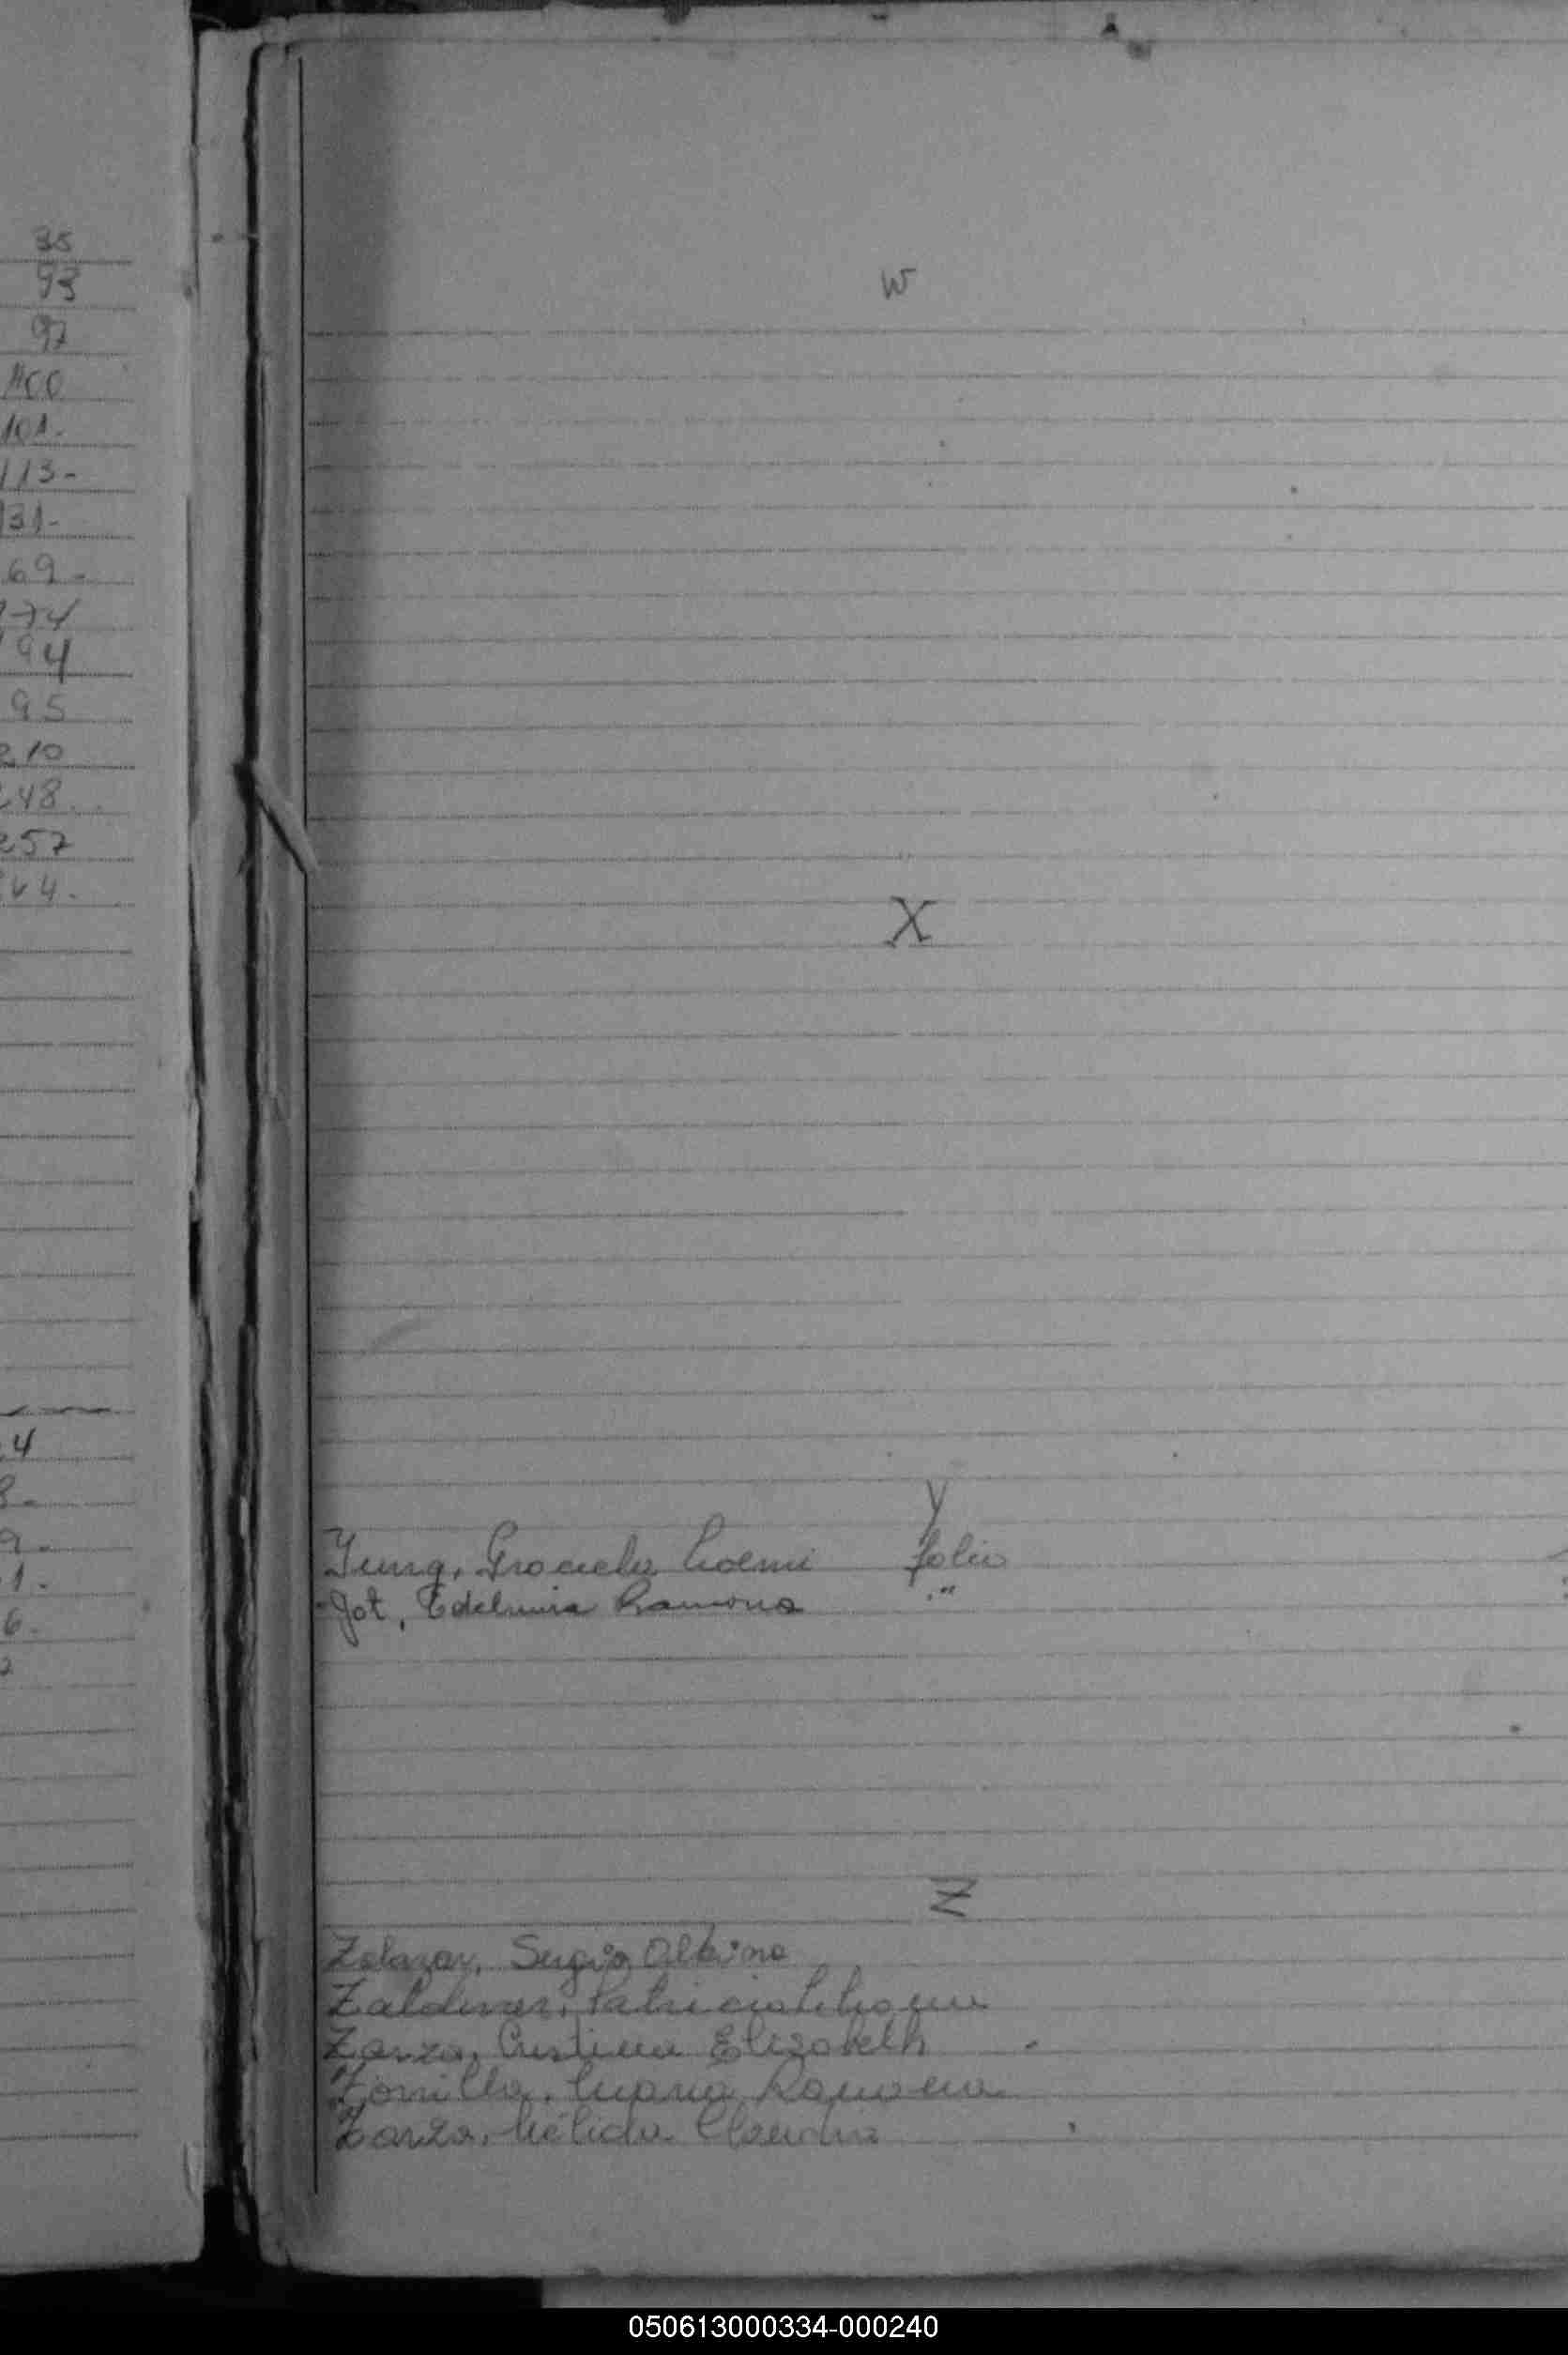 35
93
97
100
101.
113-
131-
69-
174
194
95
210
248.
257
264.
4
8-
9-
1.
6.
2
W
X
Y
Yung, Graciela Noemi folio
Yot, Edelmira Ramona "
Z
Zelazar, Sergio Albino
Zaldivar, Patricia
Zarza, Cristina Elizabeth
Zorrilla, Maria Ramona
Zarza, Nélida Claudia
050613000334-000240